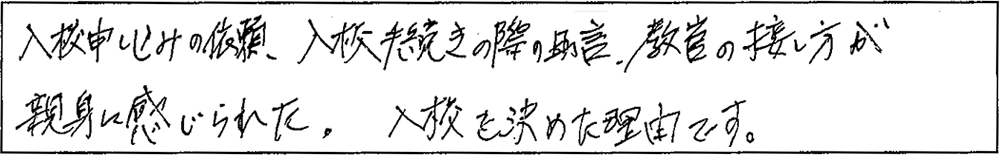 入校申し込みの依頼、入校手続きの際の助言、教官の接し方が
親身に感じられた。 入校を決めた理由です。